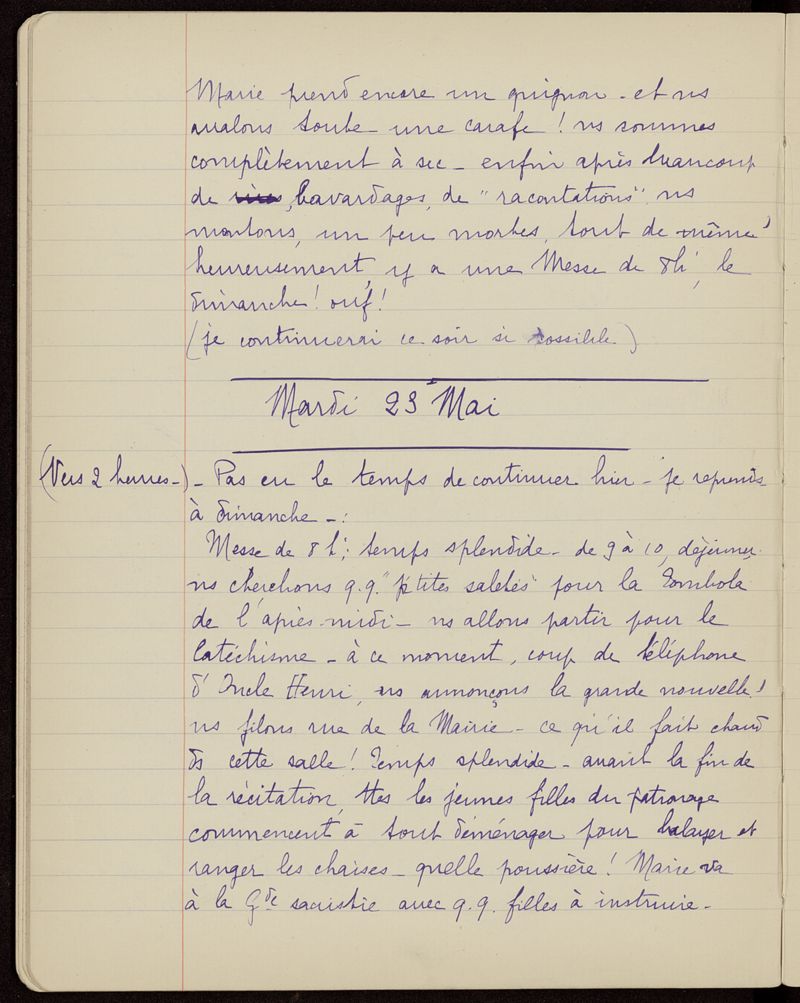 Marie prend encore un quignon - et ns
avalons toute - une carafe ! ns sommes
complètement à sec - enfin après beaucoup
de bavardages, de "racontations" ns
montons, un peu mortes, tout de même !
heureusement, y a une Messe de 8h, le
dimanche ! ouf !
(je continuerai ce soir si possible.)
Mardi 23 Mai
(Vers 2 heures -) - Pas eu le temps de continuer hier - je reprends
à dimanche - :
Messe de 8 h ; temps splendide - de 9 à 10, déjeuner.
ns cherchons q.q. "p'tites saletés" pour la Tombola
de l'après-midi - ns allons partir pour le
Catéchisme - à ce moment, coup de téléphone
d'Oncle Henri, ns annonçons la grande nouvelle !
ns filons rue de la Mairie - ce qu'il fait chaud
ds cette salle ! Temps splendide - avant la fin de
la récitation, ttes les jeunes filles du patronage
commencent à tout déménager pour balayer et
ranger les chaises - quelle poussière ! Marie va
à la Gde sacristie avec q.q. filles à instruire -